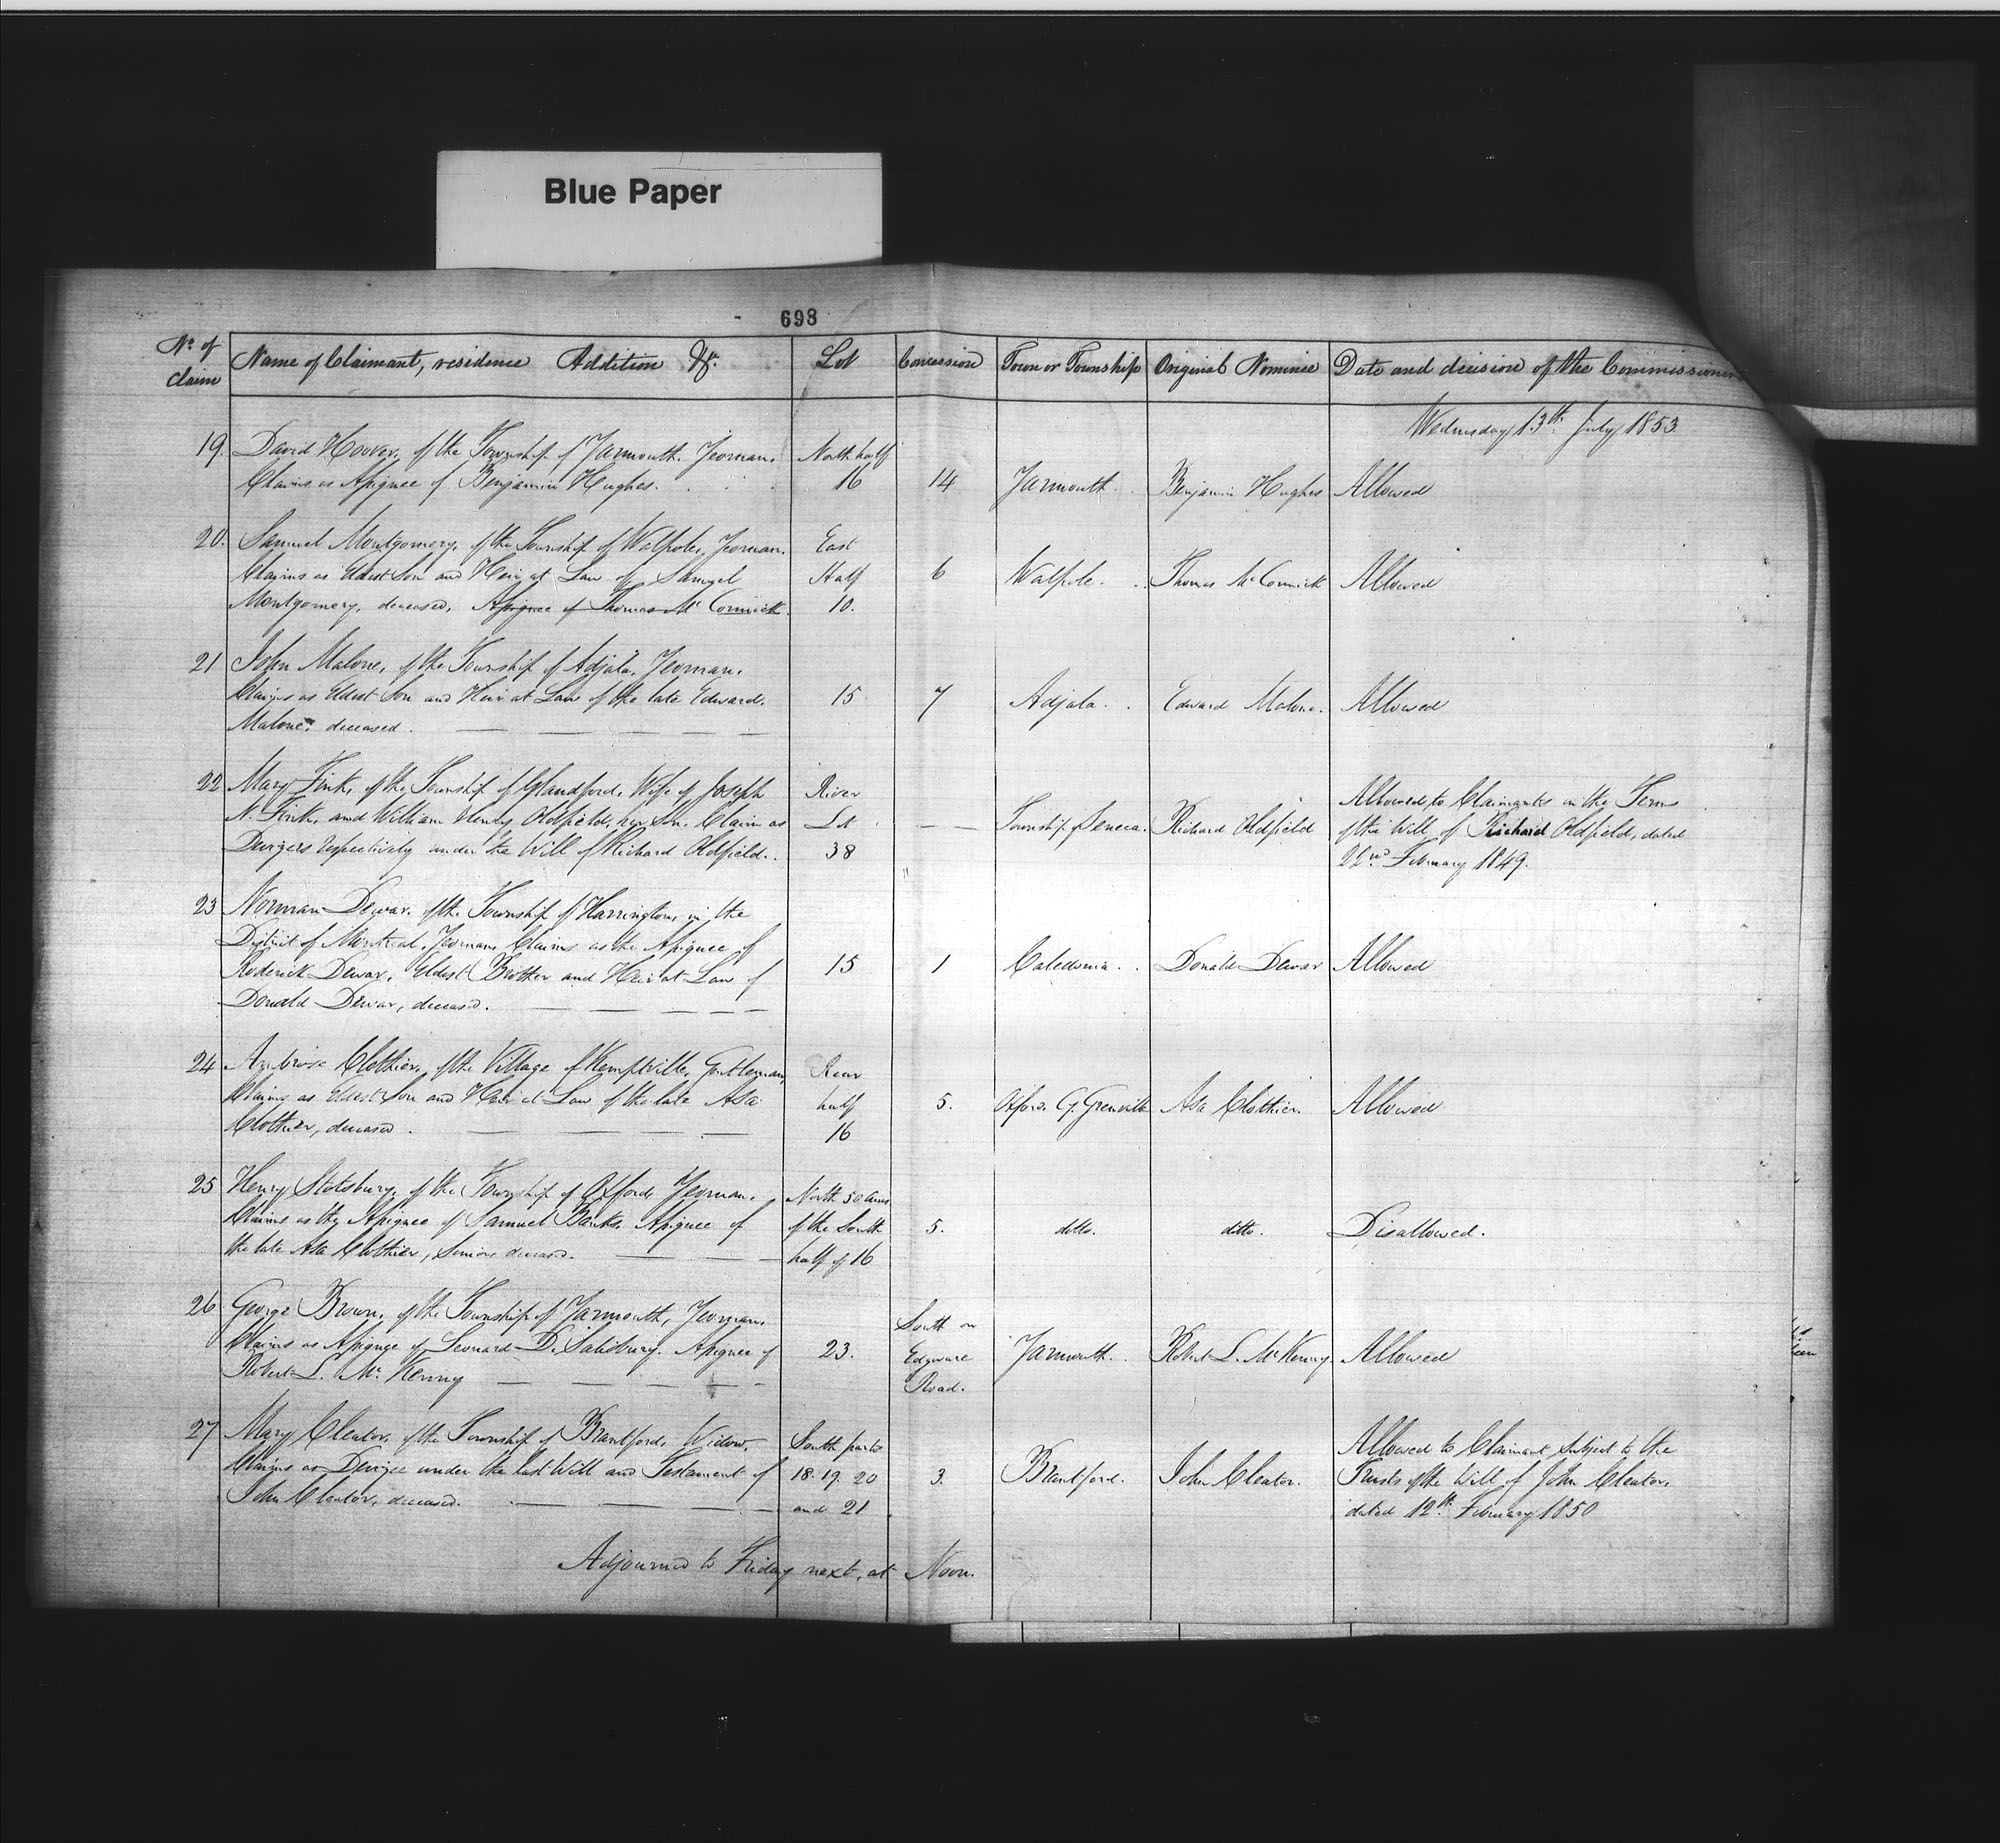 Blue Paper
698
No. of claim | Name of Claimant, residence Addition &c. | Lot | Concession | Town or Township | Original Nominee | Date and decision of the Commissioners
Wednesday 13th July 1853
19. David Hoover, of the Township of Yarmouth. Yeoman. | North half
Claims as Assignee of Benjamin Hughes. | 16 | 14 | Yarmouth. | Benjamin Hughes | Allowed
20. Samuel Montgomery, of the Township of Walpole, Yeoman. | East
Claims as Eldest Son and Heir at Law of Samuel | Half | 6 | Walpole. | Thomas McCormick | Allowed
Montgomery, deceased, Assignee of Thomas McCormick. | 10.
21 John Malone, of the Township of Adjala, Yeoman.
Claims as Eldest Son and Heir at Law of the late Edward | 15 | 7 | Adjala. | Edward Malone. | Allowed
Malone, deceased.
22 Mary Fink, of the Township of Glandford, Wife of Joseph | River | Allowed to Claimants in the Terms
N. Fink, and William Henry Oldfield, her Son. Claim as | Lot | Township Seneca. | Richard Oldfield | of the Will of Richard Oldfield, dated
Devizees respectively under the Will of Richard Oldfield. | 38 | 22nd February 1849.
23 Norman Dewar, of the Township of Harrington, in the
District of Montreal, Yeoman, Claims as the Assignee of
Roderick Dewar, Eldest Brother and Heir at Law of | 15 | 1 | Caledonia. | Donald Dewar | Allowed
Donald Dewar, deceased.
24 Ambrose Clothier, of the Village of Kemptville, Gentleman, | Rear
Claims as Eldest Son and Heir at Law of the late Asa | half | 5. | Oxford G. Grenville | Asa Clothier. | Allowed
Clothier, deceased. | 16
25 Henry Stotsbury, of the Township of Oxford, Yeoman. | North 50 acres
Claims as the Assignee of Samuel Banks, Assignee of | of the South | 5. | ditto. | ditto. | Disallowed.
the late Asa Clothier, Senior deceased. | half of 16
26. George Brown, of the Township of Yarmouth, Yeoman. | South on
Claims as Assignee of Leonard D. Salisbury, Assignee of | 23. | Edgware | Yarmouth. | Robert L. McKenny | Allowed
Robert L. McKenny | Road.
27 Mary Cleator, of the Township of Brantford, Widow. | South parts | Allowed to Claimant subject to the
Claims as Devizee under the last Will and Testament of | 18. 19. 20 | 3. | Brantford. | John Cleator. | Trusts of the Will of John Cleator,
John Cleator, deceased. | and 21 | dated 12th February 1850
Adjourned to Friday next, at Noon.